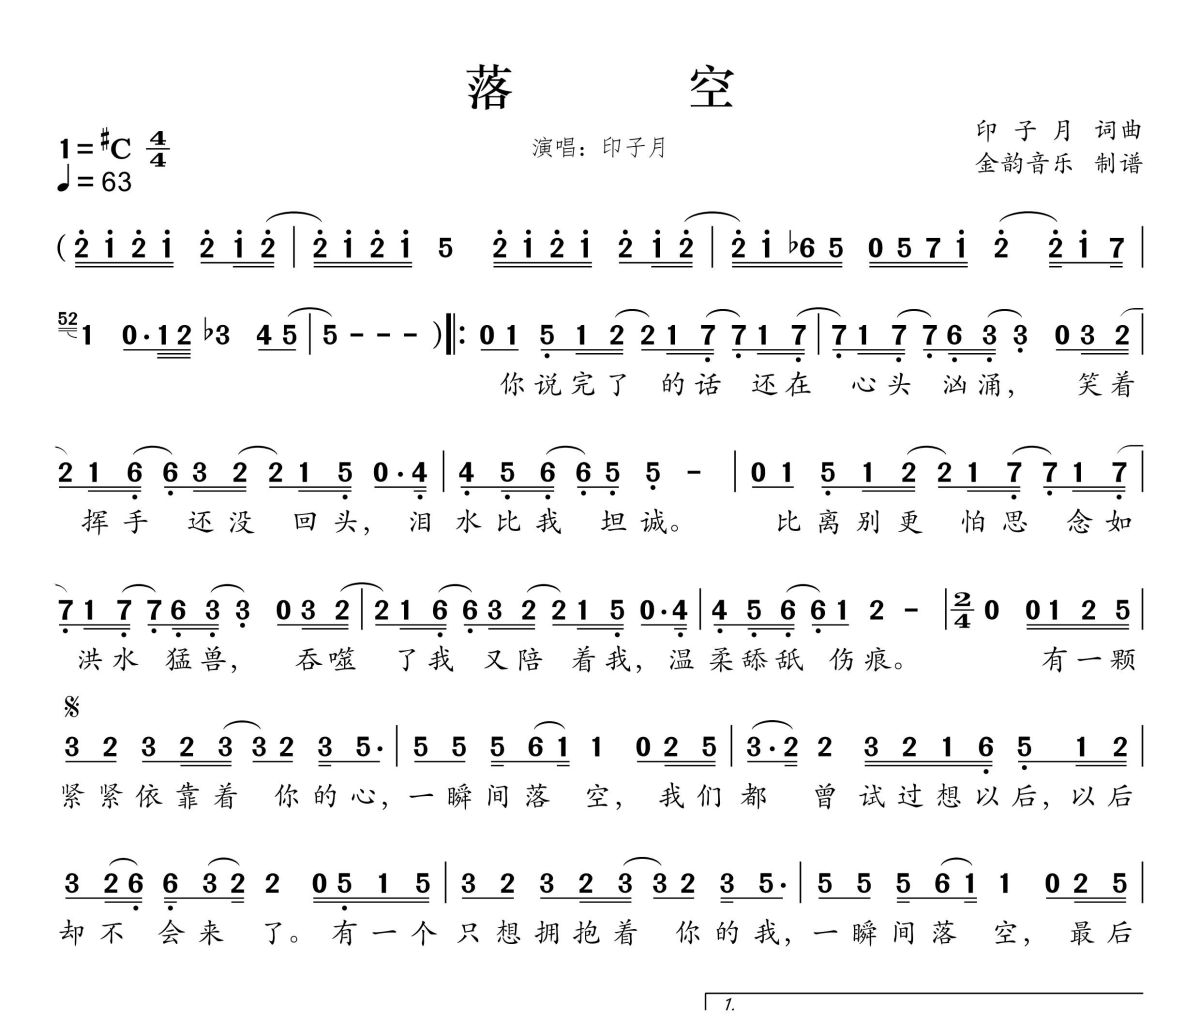 落 空
1=#C 4/4
♩=63
演唱：印子月
印子月 词曲
金韵音乐 制谱
( 2 1 2 1 2 1 2 | 2 1 2 1 5 2 1 2 1 2 1 2 | 2 1 ♭6 5 0 5 7 1 2 2 1 7 |
52 1 0·1 2 ♭3 4 5 | 5 - - - ) ‖: 0 1 5 1 2 2 1 7 7 1 7 | 7 1 7 7 6 3 3 0 3 2 |
你说完了 的话 还在 心头 汹涌， 笑着
2 1 6 6 3 2 2 1 5 0·4 | 4 5 6 6 5 5 - | 0 1 5 1 2 2 1 7 7 1 7 |
挥手 还没 回头， 泪水比我 坦诚。 比离别更 怕思 念如
7 1 7 7 6 3 3 0 3 2 | 2 1 6 6 3 2 2 1 5 0·4 | 4 5 6 6 1 2 - | 2/4 0 0 1 2 5 |
洪水 猛兽， 吞噬 了我 又陪 着我，温柔舔舐 伤痕。 有一颗
𝄋
3 2 3 2 3 3 2 3 5· | 5 5 5 6 1 1 0 2 5 | 3·2 2 3 2 1 6 5 1 2 |
紧紧依靠着 你的心，一瞬间落 空， 我们都 曾试过想以后，以后
3 2 6 6 3 2 2 0 5 1 5 | 3 2 3 2 3 3 2 3 5· | 5 5 5 6 1 1 0 2 5 |
却不 会来 了。有一个只想拥抱着 你的我，一瞬间落 空， 最后
1.